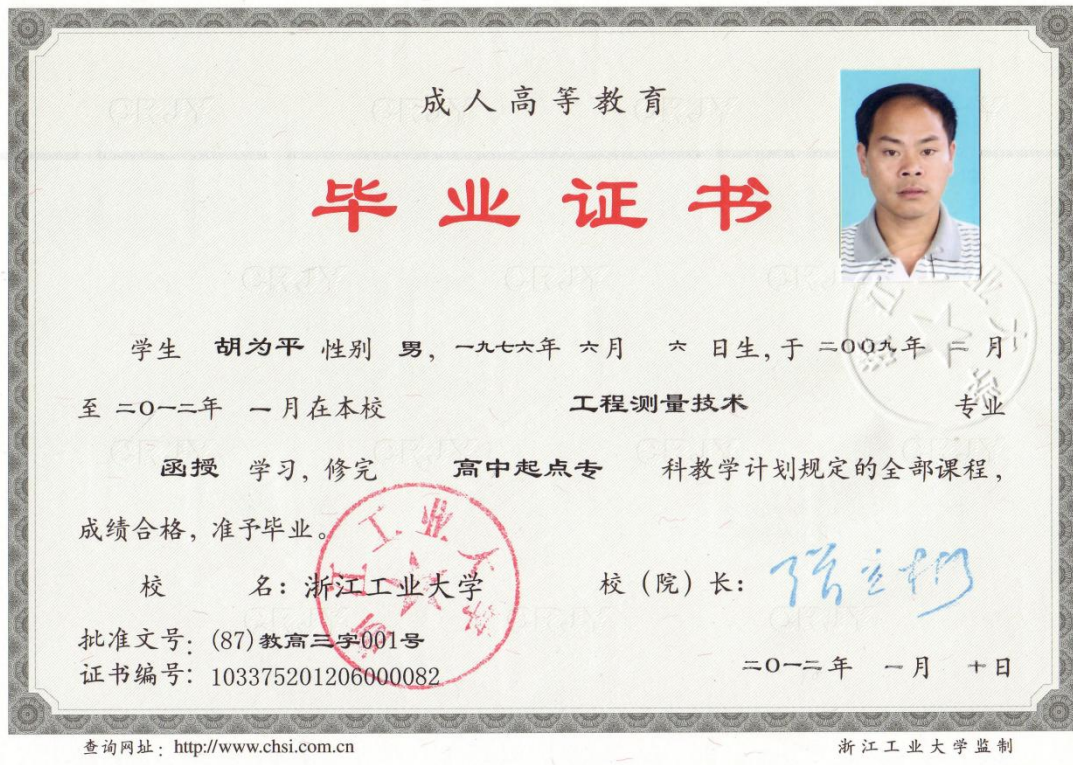 成人高等教育
毕业证书
学生 胡为平 性别 男，一九七六年 六月 六 日生，于 二〇〇九年 二 月
至 二〇一二年 一月在本校 工程测量技术 专业
函授 学习，修完 高中起点专 科教学计划规定的全部课程，
成绩合格，准予毕业。
浙江工业大学
校 名：浙江工业大学 校（院）长：
批准文号：(87)教高三字001号
证书编号：103375201206000082
二〇一二年 一月 十日
查询网址：http://www.chsi.com.cn 浙江工业大学监制